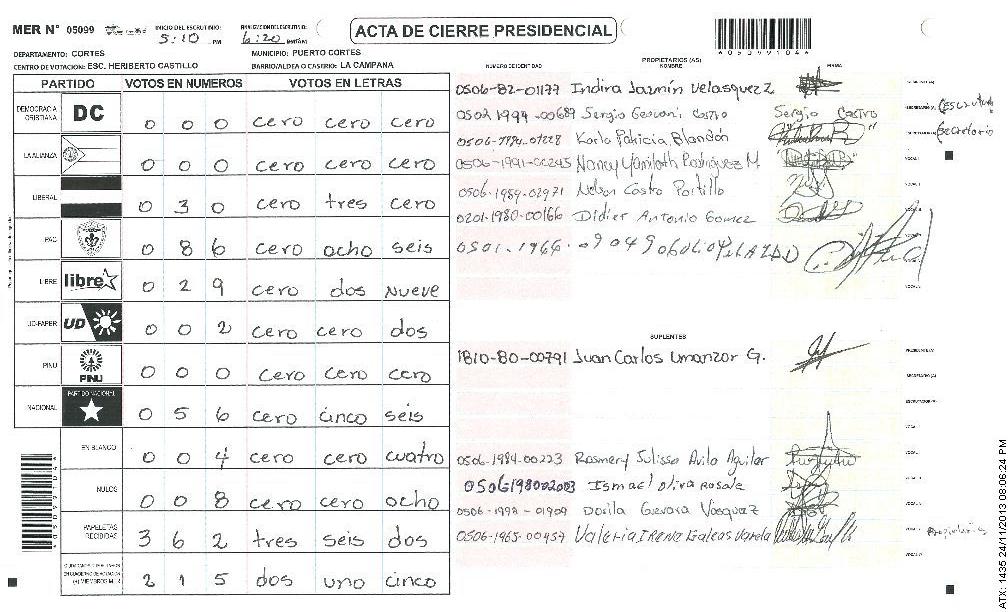 MER N° 05099 INICIO DEL ESCRUTINIO: 5:10 PM FINALIZACION DEL ESCRUTINIO: 6:20 ACTA DE CIERRE PRESIDENCIAL
DEPARTAMENTO: CORTES MUNICIPIO: PUERTO CORTES
CENTRO DE VOTACION: ESC. HERIBERTO CASTILLO BARRIO/ALDEA O CASERIO: LA CAMPANA
PARTIDO VOTOS EN NUMEROS VOTOS EN LETRAS
DEMOCRACIA CRISTIANA DC 0 0 0 cero cero cero
LA ALIANZA 0 0 0 cero cero cero
LIBERAL 0 3 0 cero tres cero
PAC 0 8 6 cero ocho seis
LIBRE libre 0 2 9 cero dos nueve
UD-FAPER UD 0 0 2 cero cero dos
PINU PINU 0 0 0 cero cero cero
NACIONAL PARTIDO NACIONAL 0 5 6 cero cinco seis
EN BLANCO 0 0 4 cero cero cuatro
NULOS 0 0 8 cero cero ocho
PAPELETAS RECIBIDAS 3 6 2 tres seis dos
2 1 5 dos uno cinco
NUMERO DE IDENTIDAD PROPIETARIOS (AS) NOMBRE FIRMA
0506-82-01177 Indira Jazmín Velasquez Z
0502 1994-00689 Sergio Castro Sergio Castro
Karla Patricia Blandón
0506-1991-00245 Nancy Rodriguez M.
0506-1989-02971 Nelson Castro Portillo
0201-1980-00166 Didier Antonio Gomez
0501-1966-09049
SUPLENTES
1810-80-00791 Juan Carlos Umanzor G.
0506-1984-00223 Rosmery Julissa Avila Aguilar
0506198002003 Ismael Oliva Rosale
0506-1998-01909 Dorila Guevara Vasquez
0506-1965-00457 Valeria Irene Varela
Escrutador
Secretario
Propietarios
ATX: 1435 24/11/2013 08:06:24 PM